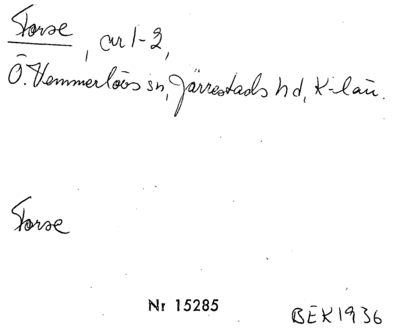 Torse, nr 1-2,
Ö. Vemmerlövs sn, Järrestads hd, K-län.
Torse
Nr 15285
BEK1936